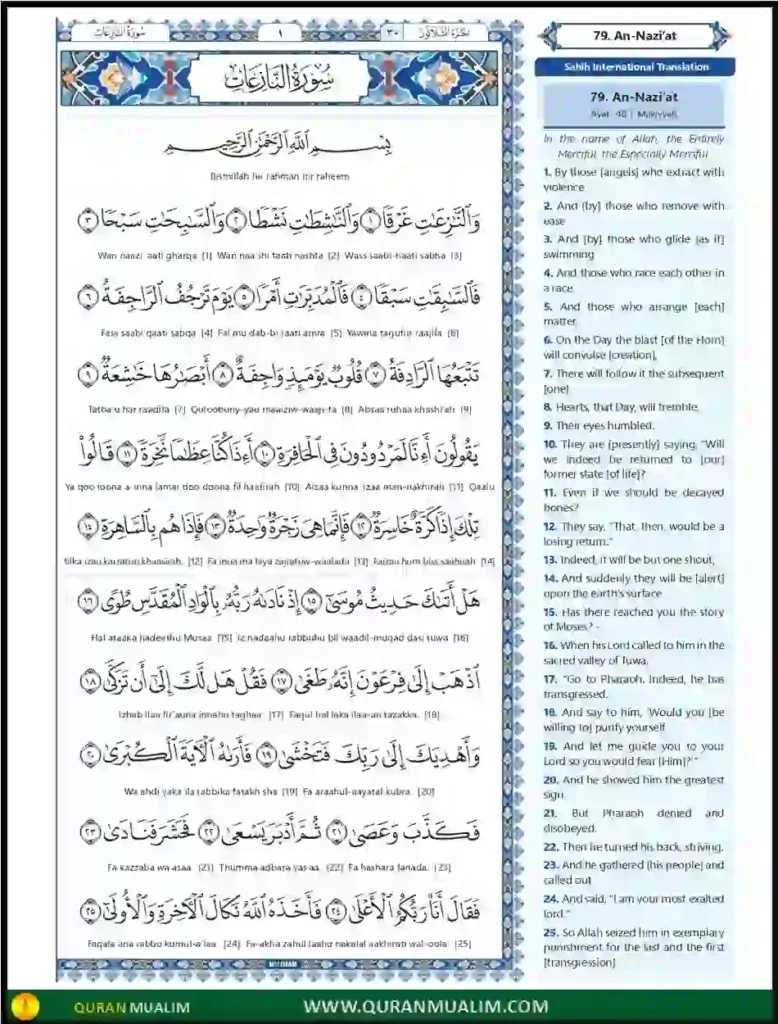 سورة النازعات
١
٣٠
الجزء الثلاثون
سورة النازعات
بسم الله الرحمن الرحيم
Bismillah hir rahman nir raheem
وَالنَّازِعَاتِ غَرْقًا ١ وَالنَّاشِطَاتِ نَشْطًا ٢ وَالسَّابِحَاتِ سَبْحًا ٣
Wan naazi aati gharqa [1] Wan naa shi taati nashta [2] Wass saabi-haati sabha [3]
فَالسَّابِقَاتِ سَبْقًا ٤ فَالْمُدَبِّرَاتِ أَمْرًا ٥ يَوْمَ تَرْجُفُ الرَّاجِفَةُ ٦
Fass saabi qaati sabqa [4] Fal mu dab-bi raati amra [5] Yawma tarjufur raajifa [6]
تَتْبَعُهَا الرَّادِفَةُ ٧ قُلُوبٌ يَوْمَئِذٍ وَاجِفَةٌ ٨ أَبْصَارُهَا خَاشِعَةٌ ٩
Tatba'u har raadifa [7] Quloobuny-yau maaiziw-waaji-fa [8] Absaa ruhaa khashi'ah [9]
يَقُولُونَ أَءِنَّا لَمَرْدُودُونَ فِي الْحَافِرَةِ ١٠ أَءِذَا كُنَّا عِظَامًا نَّخِرَةً ١١ قَالُوا
Ya qoo loona a-inna lamar doo doona fil haafirah [10] Aizaa kunna izaa man-nakhirah [11] Qaalu
تِلْكَ إِذًا كَرَّةٌ خَاسِرَةٌ ١٢ فَإِنَّمَا هِيَ زَجْرَةٌ وَاحِدَةٌ ١٣ فَإِذَا هُم بِالسَّاهِرَةِ ١٤
tilka izan karratun khaasirah. [12] Fa inna ma hiya zajratuw-waahida [13] Faizaa hum biss saahirah [14]
هَلْ أَتَاكَ حَدِيثُ مُوسَى ١٥ إِذْ نَادَاهُ رَبُّهُ بِالْوَادِ الْمُقَدَّسِ طُوًى ١٦
Hal ataaka hadeethu Musaa [15] Iz nadaahu rabbuhu bil waadil-muqad dasi tuwa [16]
اذْهَبْ إِلَى فِرْعَوْنَ إِنَّهُ طَغَى ١٧ فَقُلْ هَل لَّكَ إِلَى أَن تَزَكَّى ١٨
Izhab ilaa fir'auna innahu taghaa. [17] Faqul hal laka ilaa-an tazakka. [18]
وَأَهْدِيَكَ إِلَى رَبِّكَ فَتَخْشَى ١٩ فَأَرَاهُ الْآيَةَ الْكُبْرَى ٢٠
Wa ahdi yaka ila rabbika fatakh sha [19] Fa araahul-aayatal kubra. [20]
فَكَذَّبَ وَعَصَى ٢١ ثُمَّ أَدْبَرَ يَسْعَى ٢٢ فَحَشَرَ فَنَادَى ٢٣
Fa kazzaba wa asaa. [21] Thumma adbara yas'aa. [22] Fa hashara fanada. [23]
فَقَالَ أَنَا رَبُّكُمُ الْأَعْلَى ٢٤ فَأَخَذَهُ اللَّهُ نَكَالَ الْآخِرَةِ وَالْأُولَى ٢٥
Faqala ana rabbu kumul-a'laa [24] Fa-akha zahul laahu nakalal aakhirati wal-oola [25]
79. An-Nazi'at
Sahih International Translation
79. An-Nazi'at
Ayat 46 | Makiyyah
In the name of Allah, the Entirely
Merciful, the Especially Merciful
1. By those [angels] who extract with
violence
2. And [by] those who remove with
ease
3. And [by] those who glide [as if]
swimming
4. And those who race each other in
a race
5. And those who arrange [each]
matter,
6. On the Day the blast [of the Horn]
will convulse [creation],
7. There will follow it the subsequent
[one]
8. Hearts, that Day, will tremble,
9. Their eyes humbled.
10. They are [presently] saying, "Will
we indeed be returned to [our]
former state [of life]?
11. Even if we should be decayed
bones?
12. They say, "That, then, would be a
losing return."
13. Indeed, it will be but one shout,
14. And suddenly they will be [alert]
upon the earth's surface
15. Has there reached you the story
of Moses? -
16. When his Lord called to him in the
sacred valley of Tuwa,
17. "Go to Pharaoh. Indeed, he has
transgressed.
18. And say to him, 'Would you [be
willing to] purify yourself
19. And let me guide you to your
Lord so you would fear [Him]?'"
20. And he showed him the greatest
sign
21. But Pharaoh denied and
disobeyed.
22. Then he turned his back, striving.
23. And he gathered [his people] and
called out
24. And said, "I am your most exalted
lord."
25. So Allah seized him in exemplary
punishment for the last and the first
[transgression]
QURAN MUALIM
WWW.QURANMUALIM.COM